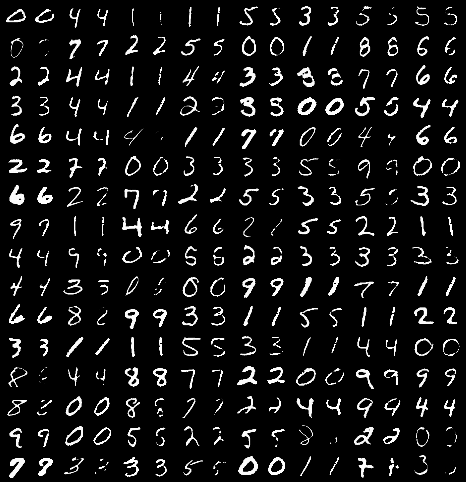 0 0 4 4 1 1 1 1 5 5 3 3 5 5 5 5
0 0 7 7 2 2 5 5 0 0 1 1 8 8 6 6
2 2 4 4 1 1 4 4 3 3 3 3 7 7 6 6
3 3 4 4 1 1 2 2 3 3 0 0 5 5 4 4
6 6 4 4 4 1 1 7 7 0 0 4 6 6
2 2 7 7 0 0 3 3 3 3 5 5 9 9 0 0
6 6 2 2 7 7 2 2 5 5 3 3 5 5 3 3
9 9 1 1 4 4 6 6 2 2 5 5 2 2 1 1
4 4 9 9 0 0 5 5 2 2 3 3 3 3 3 3
4 4 3 3 0 0 0 9 9 1 1 7 7 1 1
6 6 8 2 9 9 3 3 1 1 5 5 1 1 2 2
3 3 1 1 1 1 5 5 3 3 1 1 4 4 0 0
8 4 4 8 8 7 7 2 2 0 0 9 9 9 9
8 8 0 0 8 8 7 7 2 2 4 4 9 9 4 4
9 9 0 0 5 5 2 2 5 5 8 2 2 0 0
7 8 3 3 3 3 5 5 0 0 1 1 7 7 3